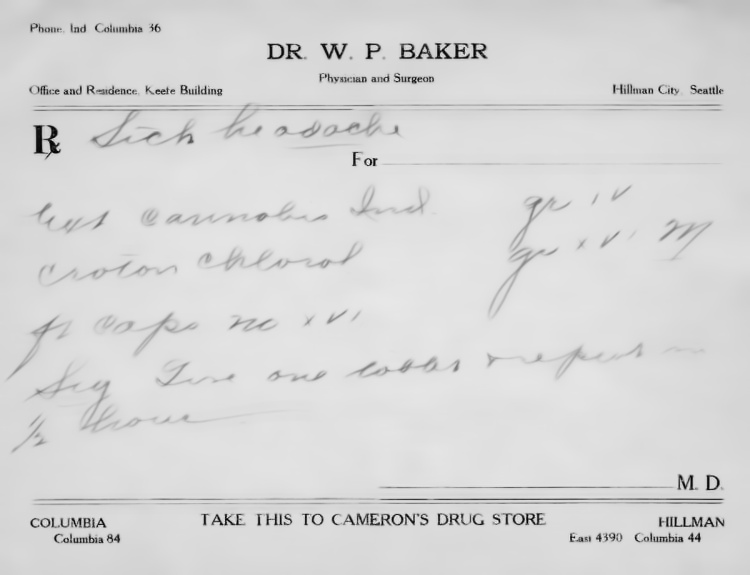 Phone. Ind Columbia 36
DR. W. P. BAKER
Physician and Surgeon
Office and Residence. Keefe Building Hillman City. Seattle
Rx Sick headache
For
Ext Cannabis Ind. gr iv
Croton Chloral gr xvi M
ft caps no xvi
Sig Give one & repeat in
1/2 hour
M. D.
COLUMBIA TAKE THIS TO CAMERON'S DRUG STORE HILLMAN
Columbia 84 East 4390 Columbia 44